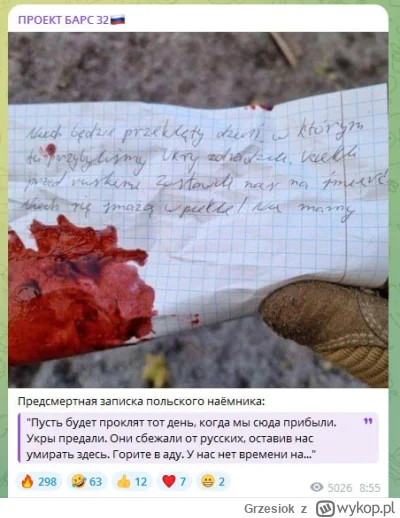 ПРОЕКТ БАРС 32
Niech będzie przeklęty dzień w którym
tu przybyliśmy Ukry zdradzili. Uciekli
przed ruskimi zostawili nas na śmierć
niech się smażą w piekle! Nie mamy
Предсмертная записка польского наёмника:
"Пусть будет проклят тот день, когда мы сюда прибыли.
Укры предали. Они сбежали от русских, оставив нас
умирать здесь. Горите в аду. У нас нет времени на..."
298 63 12 7 2
5026 8:55
Grzesiok z wykop.pl